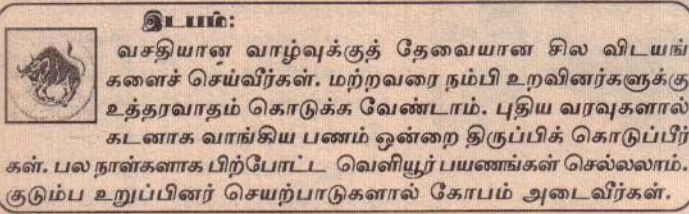 இடபம்:
வசதியான வாழ்வுக்குத் தேவையான சில விடயங்
களைச் செய்வீர்கள். மற்றவரை நம்பி உறவினர்களுக்கு
உத்தரவாதம் கொடுக்க வேண்டாம். புதிய வரவுகளால்
கடனாக வாங்கிய பணம் ஒன்றை திருப்பிக் கொடுப்பீர்
கள். பல நாள்களாக பிற்போட்ட வெளியூர் பயணங்கள் செல்லலாம்.
குடும்ப உறுப்பினர் செயற்பாடுகளால் கோபம் அடைவீர்கள்.